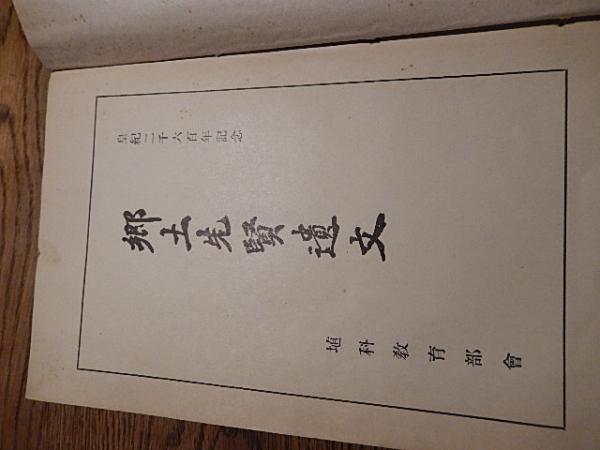 皇紀二千六百年記念
郷土先賢遺文
埴科教育部會